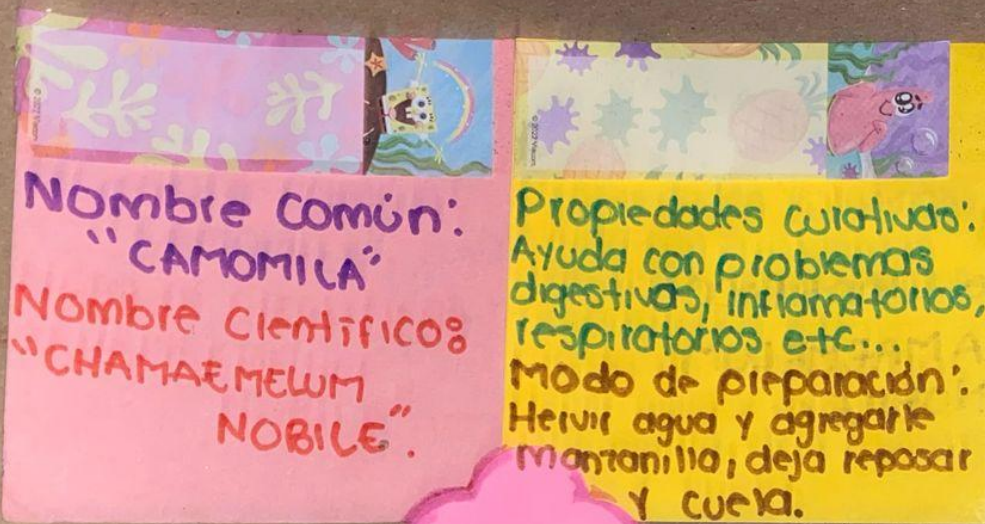 © 2022 Viacom
Nombre común:
"CAMOMILA"
Nombre Científico:
"CHAMAEMELUM
NOBILE".
© 2022 Viacom
Propiedades curativas:
Ayuda con problemas
digestivos, inflamatorios,
respiratorios etc...
Modo de preparación:
Hervir agua y agregarle
Manzanilla, deja reposar
y cuela.